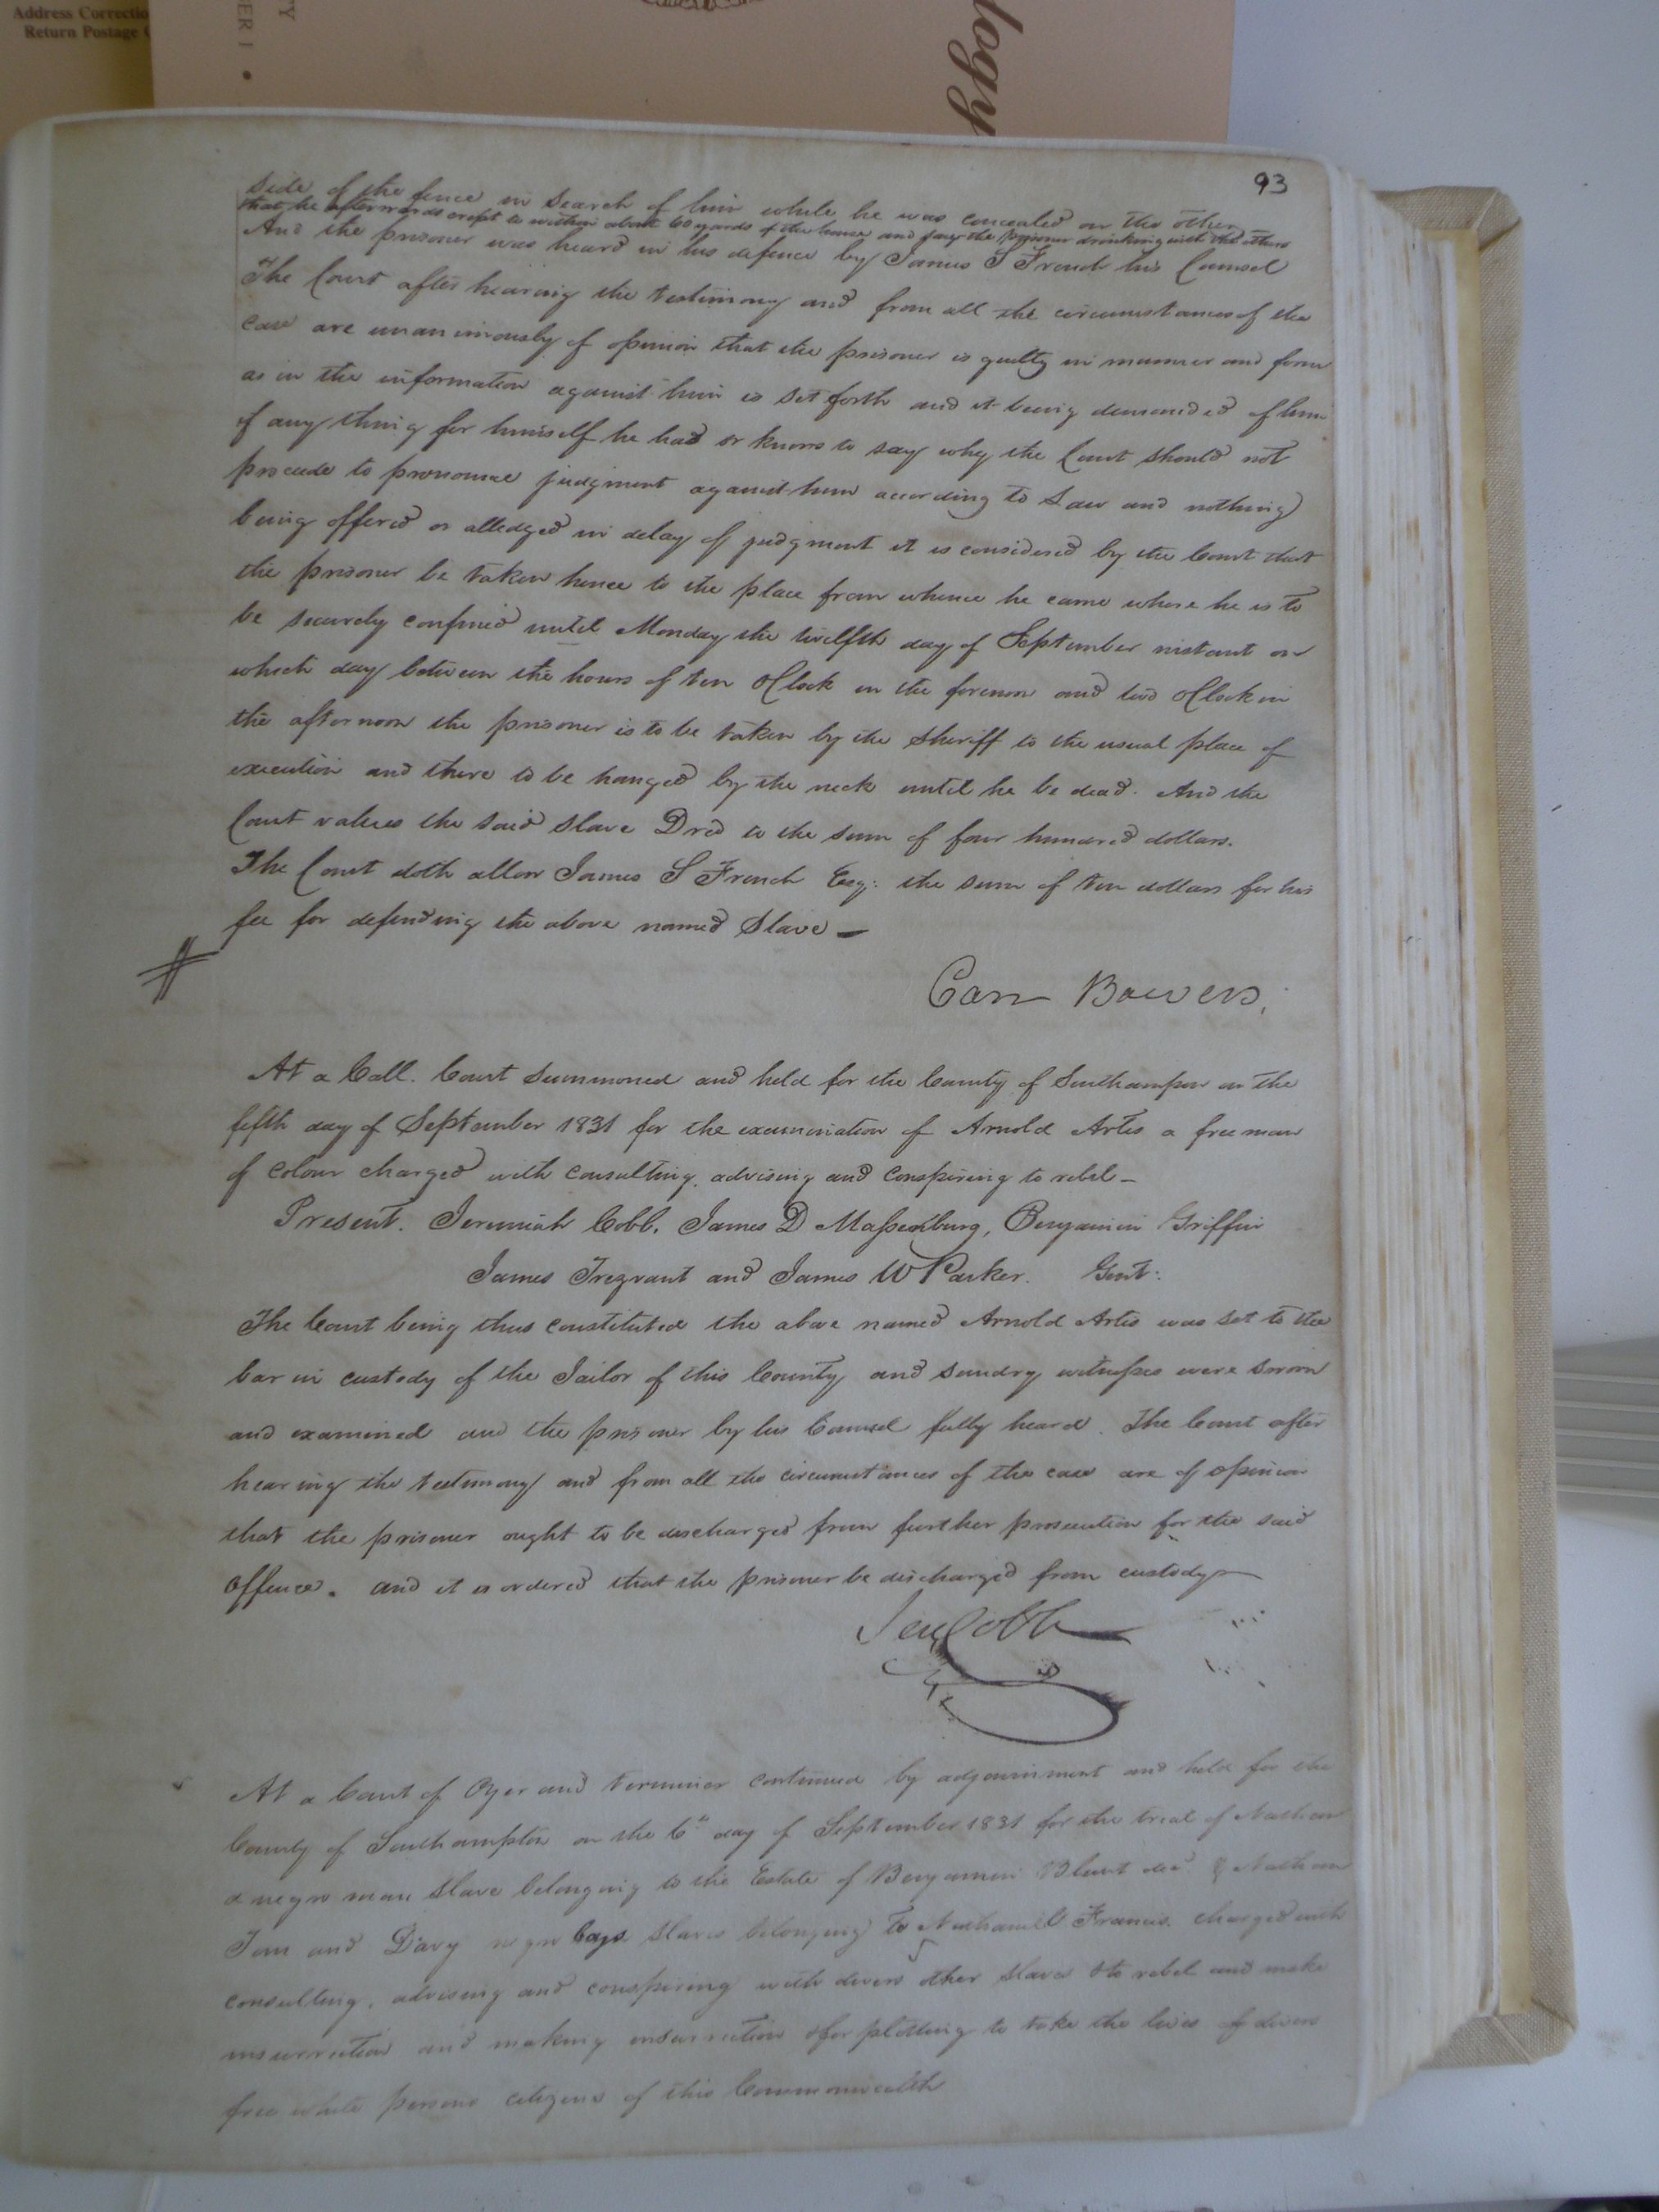 Address Correctio
Return Postage
TY
ER I •
logy
93
side of the fence in search of him while he was concealed on the other
that he afterwards crept to within about 60 yards of the house and saw the prisoner drinking with the others
And the prisoner was heard in his defence by James S French his Counsel
The Court after hearing the testimony and from all the circumstances of the
case are unanimously of opinion that the prisoner is guilty in manner and form
as in the information against him is set forth and it being demanded of him
if any thing for himself he had or knows to say why the Court should not
proceede to pronounce judgment against him according to Law and nothing
being offered or alledged in delay of judgment it is considered by the Court that
the prisoner be taken hence to the place from whence he came where he is to
be securely confined until Monday the twelfth day of September instant on
which day between the hours of ten oClock in the forenoon and two oClock in
the afternoon the prisoner is to be taken by the Sheriff to the usual place of
execution and there to be hanged by the neck until he be dead. And the
Court values the said slave Dred to the sum of four hundred dollars.
The Court doth allow James S French Esq: the sum of ten dollars for his
fee for defending the above named Slave —
Carr Bowers,
At a Call. Court summoned and held for the County of Southampton on the
fifth day of September 1831 for the examination of Arnold Artes a free man
of colour charged with consulting, advising and conspiring to rebel —
Present. Jeremiah Cobb, James D Massenburg, Benjamin Griffin
James Trezvant and James W Parker. Gent:
The Court being thus constituted the above named Arnold Artes was set to the
bar in custody of the Jailor of this County and sundry witnesses were sworn
and examined and the prisoner by his Counsel fully heard. The Court after
hearing the testimony and from all the circumstances of the case are of opinion
that the prisoner ought to be discharged from further prosecution for the said
offence. and it is ordered that the prisoner be discharged from custody —
Jer Cobb
At a Court of Oyer and terminer continued by adjournment and held for the
County of Southampton on the 6th day of September 1831 for the trial of Nathan
a negro man slave belonging to the Estate of Benjamin Blunt decd & Nathan
Tom and Davy negro boys slaves belonging to Nathaniel Francis. charged with
consulting, advising and conspiring with divers other slaves to rebel and make
insurrection and making insurrection & for plotting to take the lives of divers
free white persons citizens of this Commonwealth